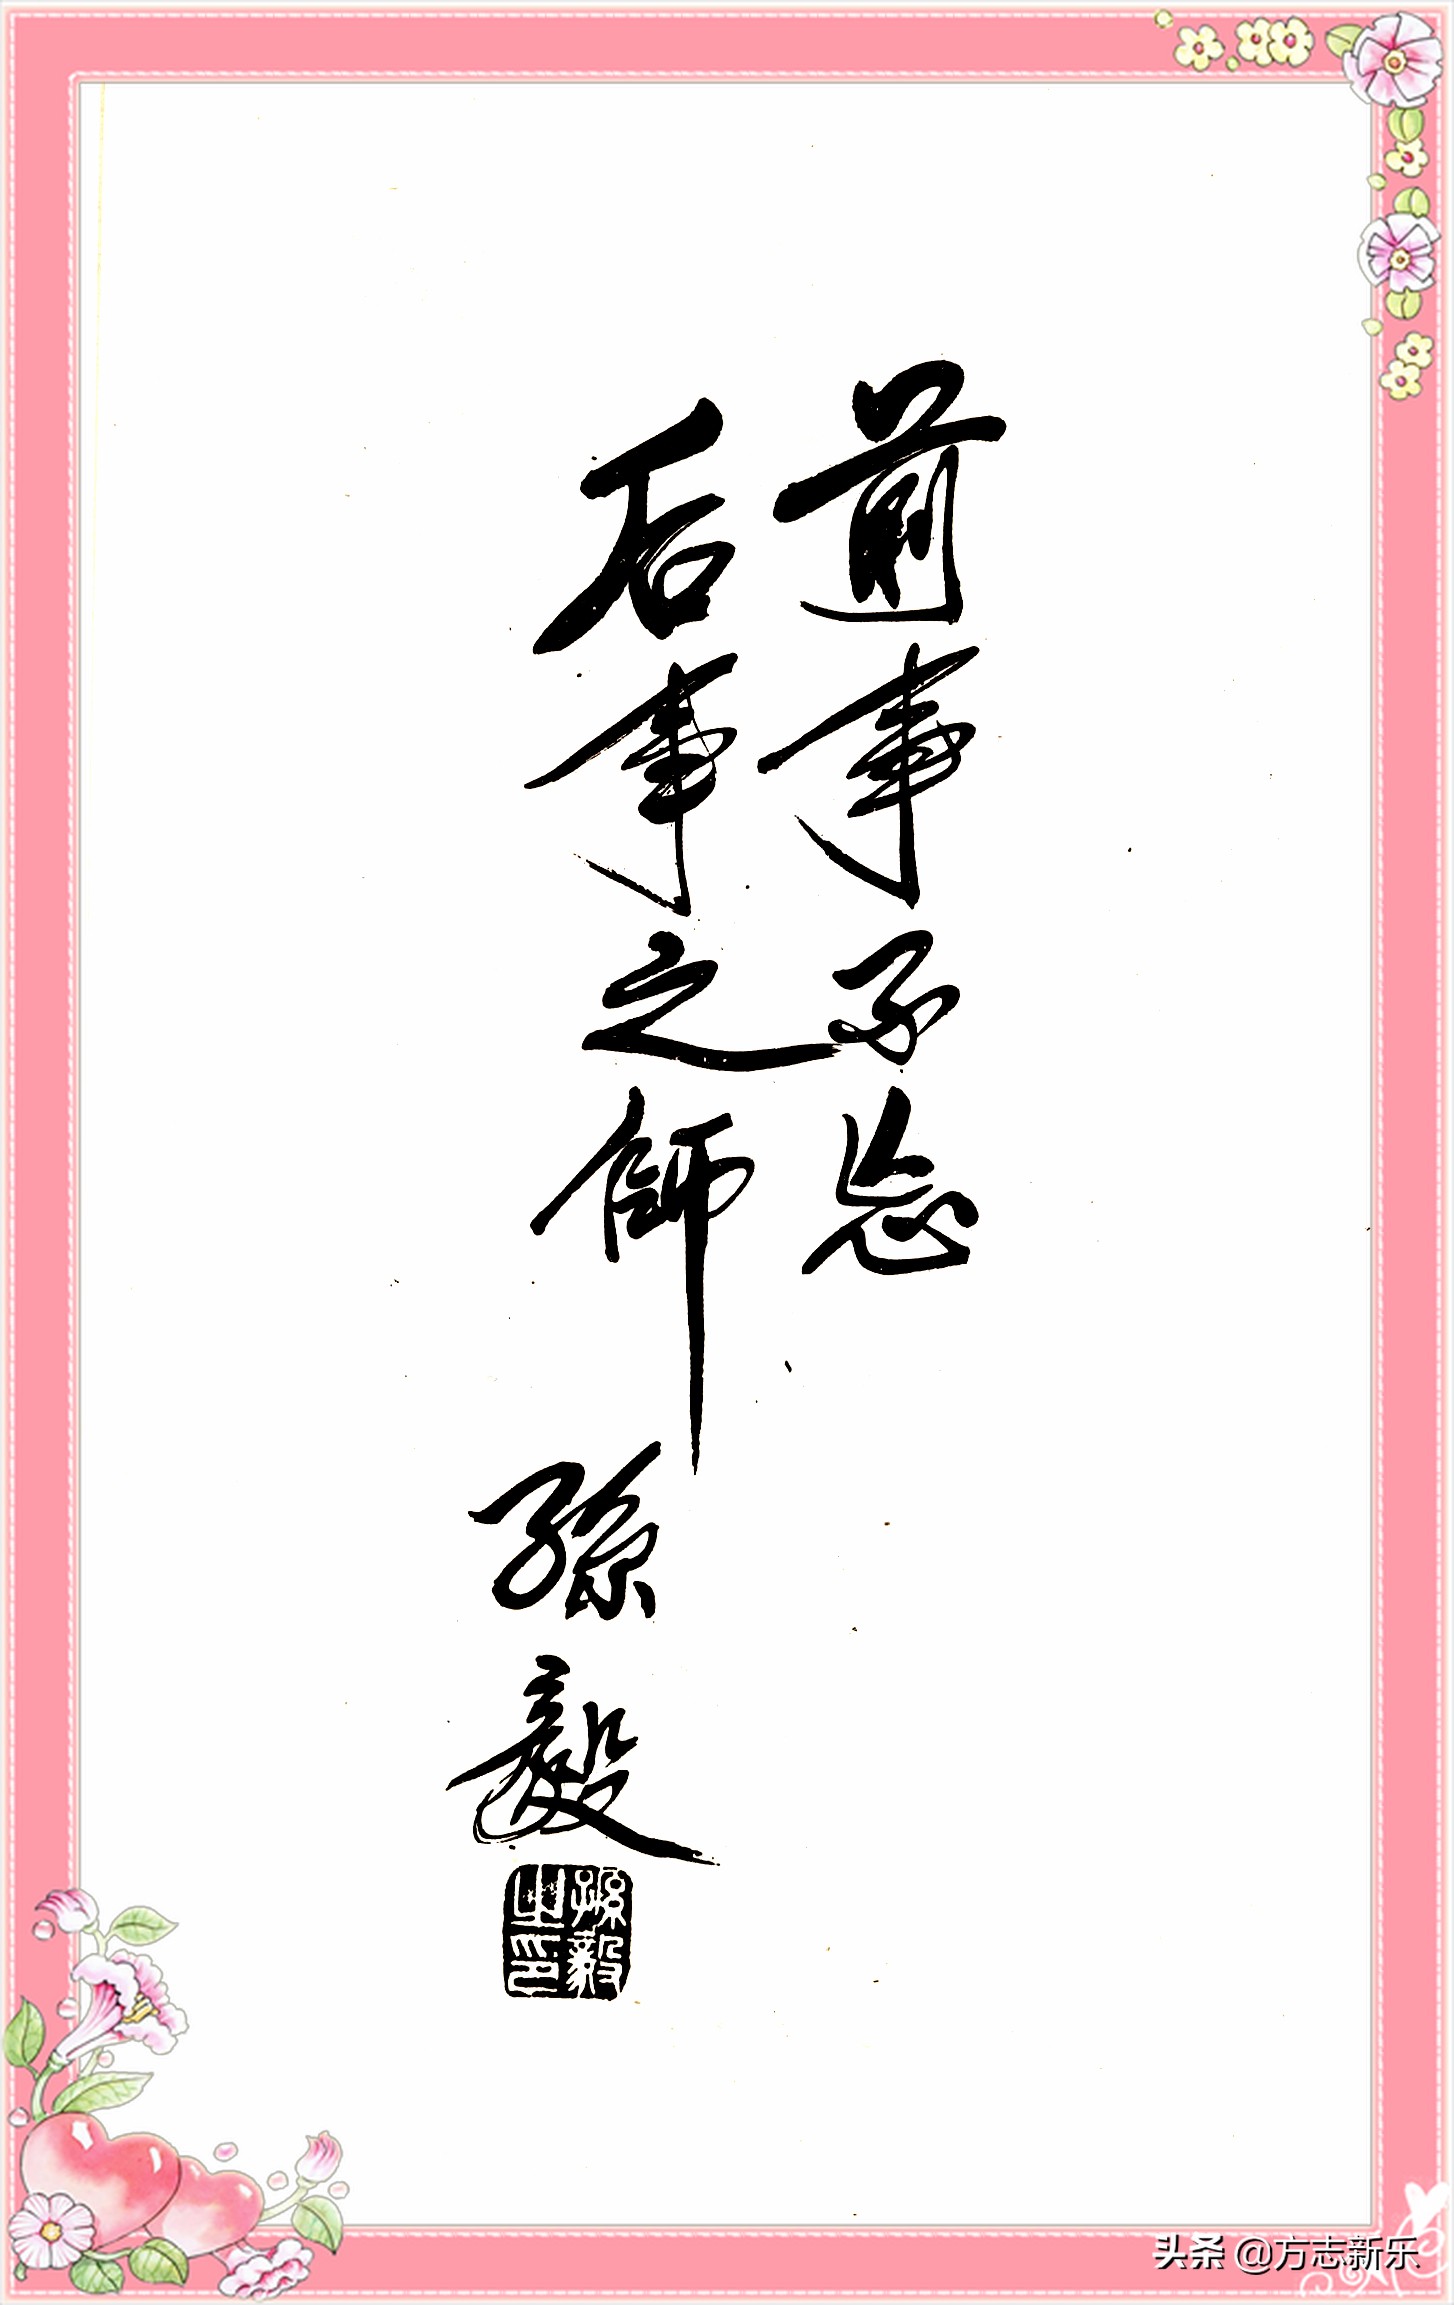 前事不忘
后事之師
孫毅
孫毅之印
头条 @方志新乐